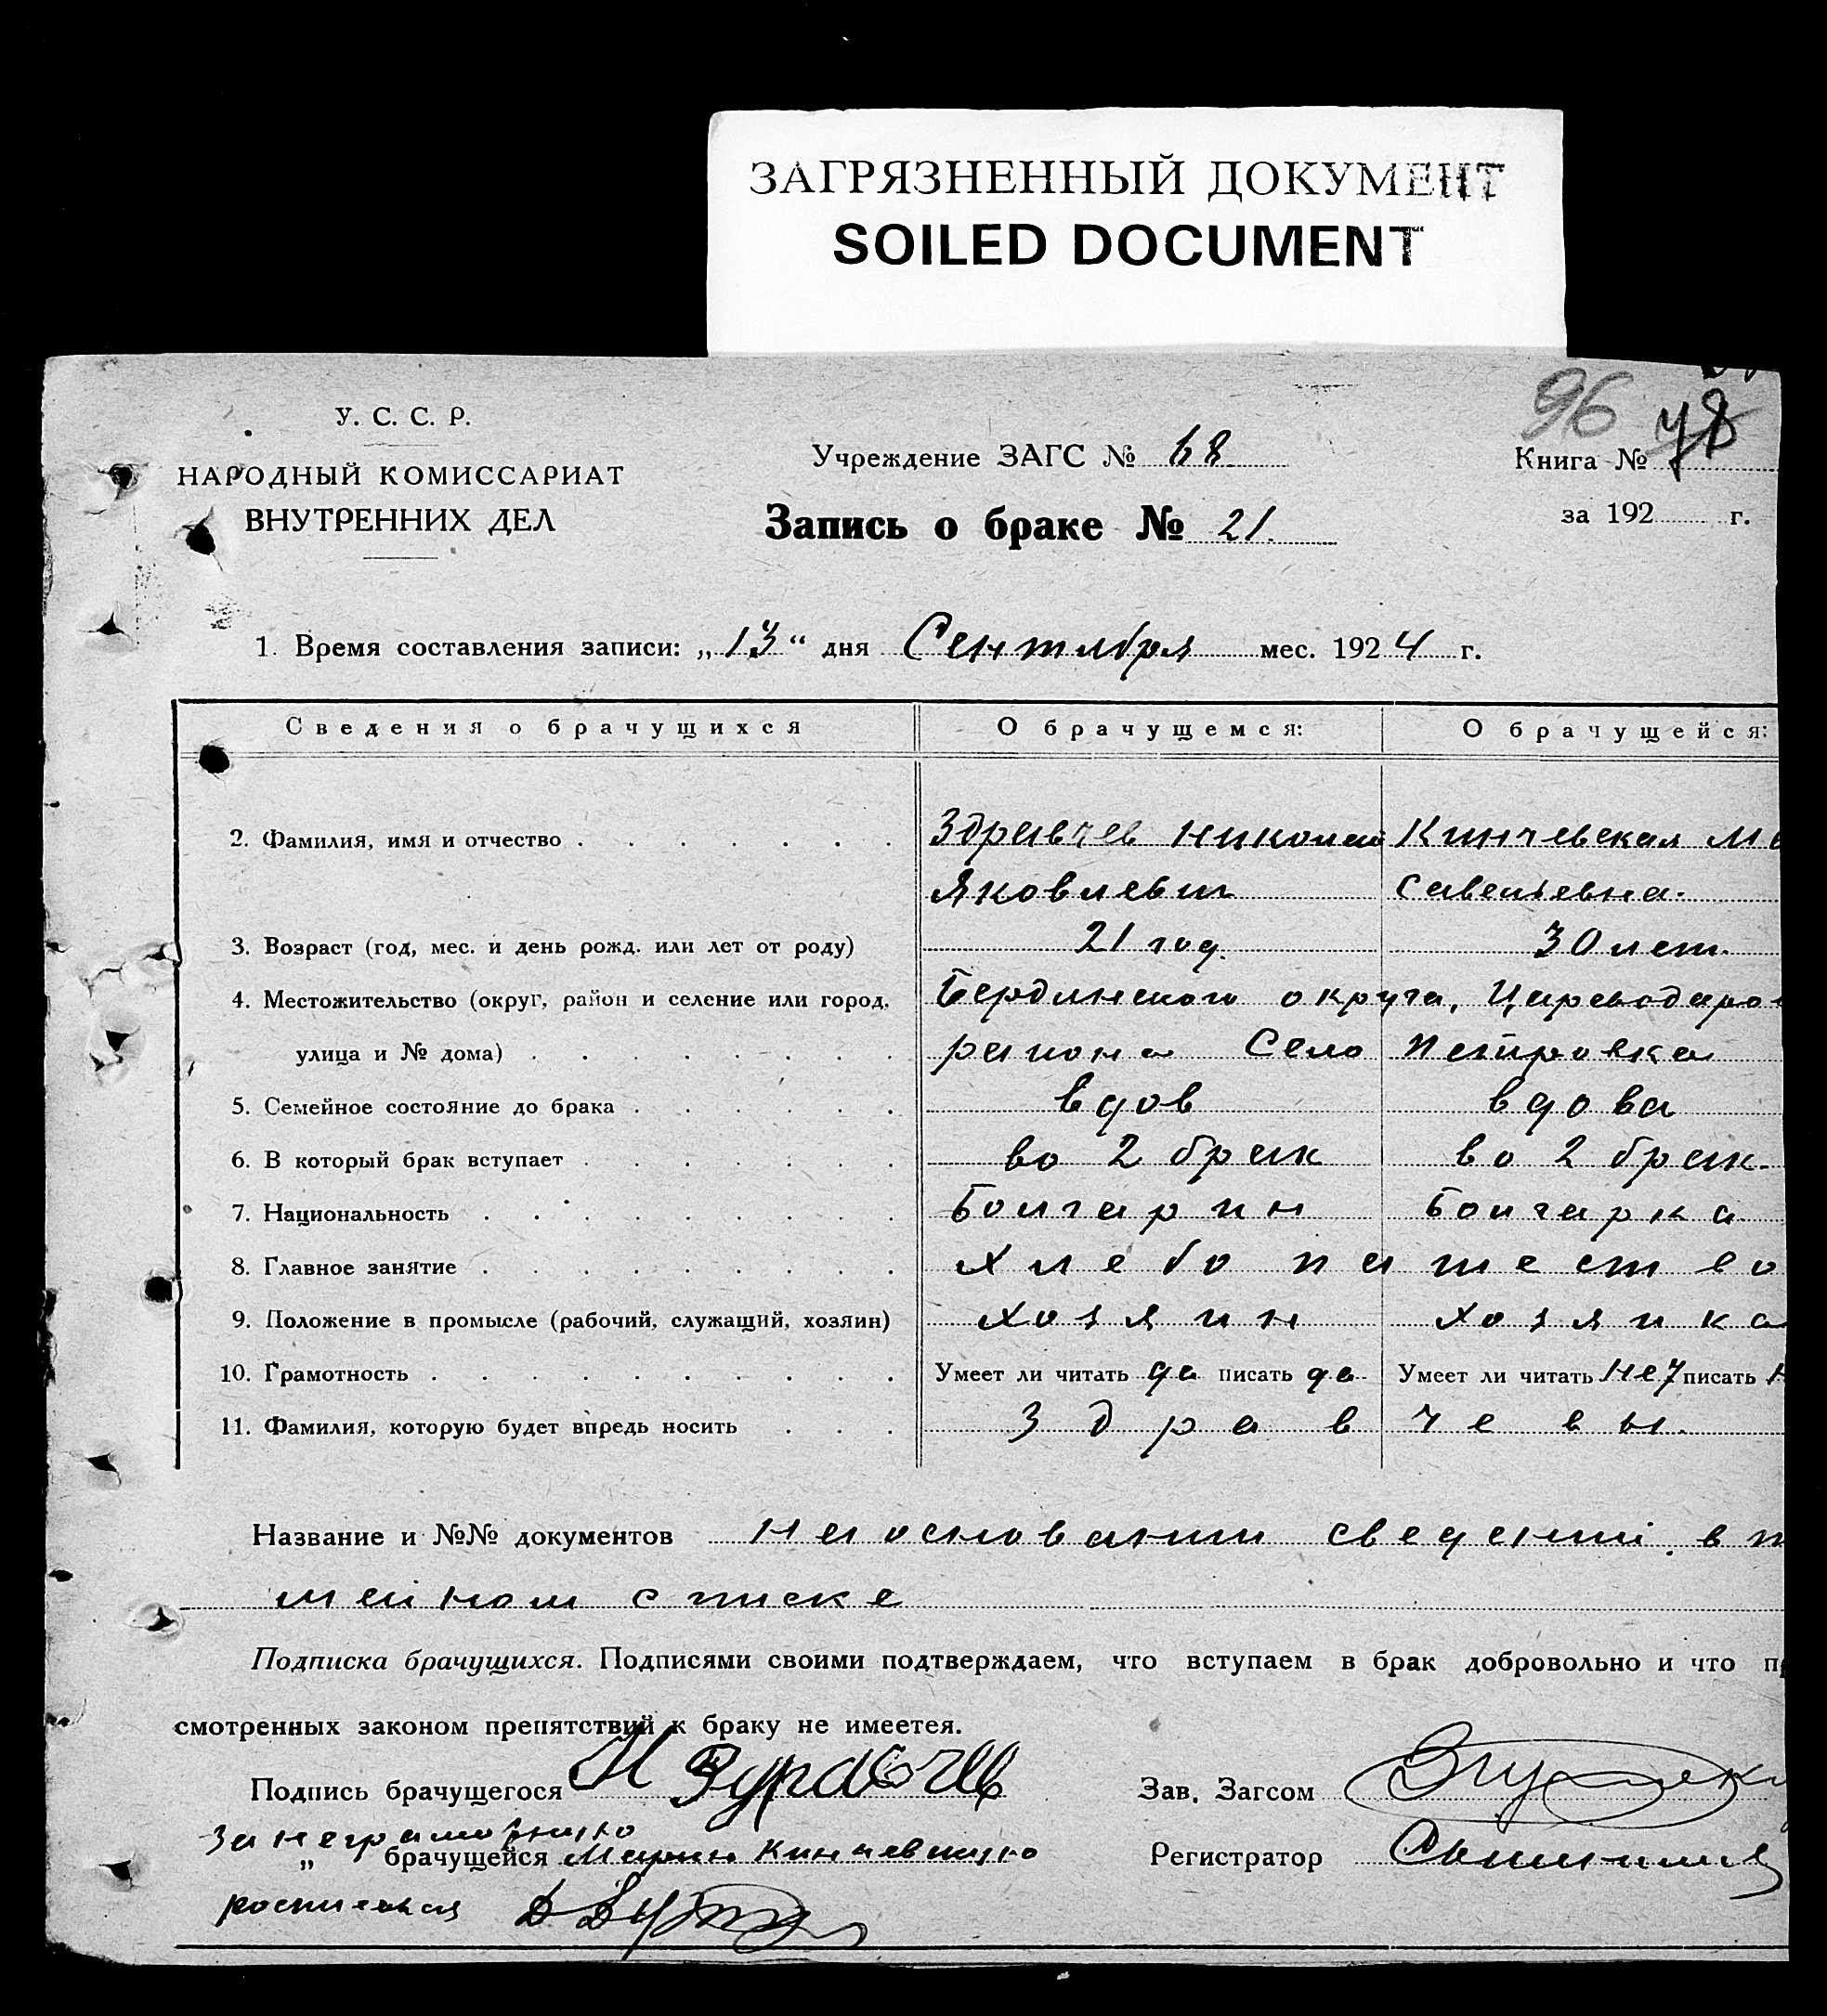 ЗАГРЯЗНЕННЫЙ ДОКУМЕНТ
SOILED DOCUMENT
96 78
У. С. С. Р.
НАРОДНЫЙ КОМИССАРИАТ
ВНУТРЕННИХ ДЕЛ
Учреждение ЗАГС № 68
Книга №
Запись о браке № 21.
за 192 г.
1. Время составления записи: „13“ дня Сентября мес. 1924 г.
Сведения о брачущихся О брачущемся: О брачущейся:
2. Фамилия, имя и отчество Здравчев Николай Кинчевская Ма
Яковлевич Савельевна.
3. Возраст (год, мес. и день рожд. или лет от роду) 21 год. 30 лет.
4. Местожительство (округ, район и селение или город, Бердянского округа, Цареводаро
улица и № дома) района Село Петровка
5. Семейное состояние до брака вдов вдова
6. В который брак вступает во 2 брак во 2 брак.
7. Национальность Болгарин Болгарка
8. Главное занятие хлебопашество
9. Положение в промысле (рабочий, служащий, хозяин) хозяин хозяйка
10. Грамотность Умеет ли читать да писать да Умеет ли читать нет писать н
11. Фамилия, которую будет впредь носить Здравчевы.
Название и №№ документов на основании сведений. в п
мейном списке
Подписка брачущихся. Подписями своими подтверждаем, что вступаем в брак добровольно и что п
смотренных законом препятствий к браку не имеется.
Подпись брачущегося Н Здравчев Зав. Загсом
За неграмотную
„ брачущейся Марию Кинчевскую Регистратор
росписался